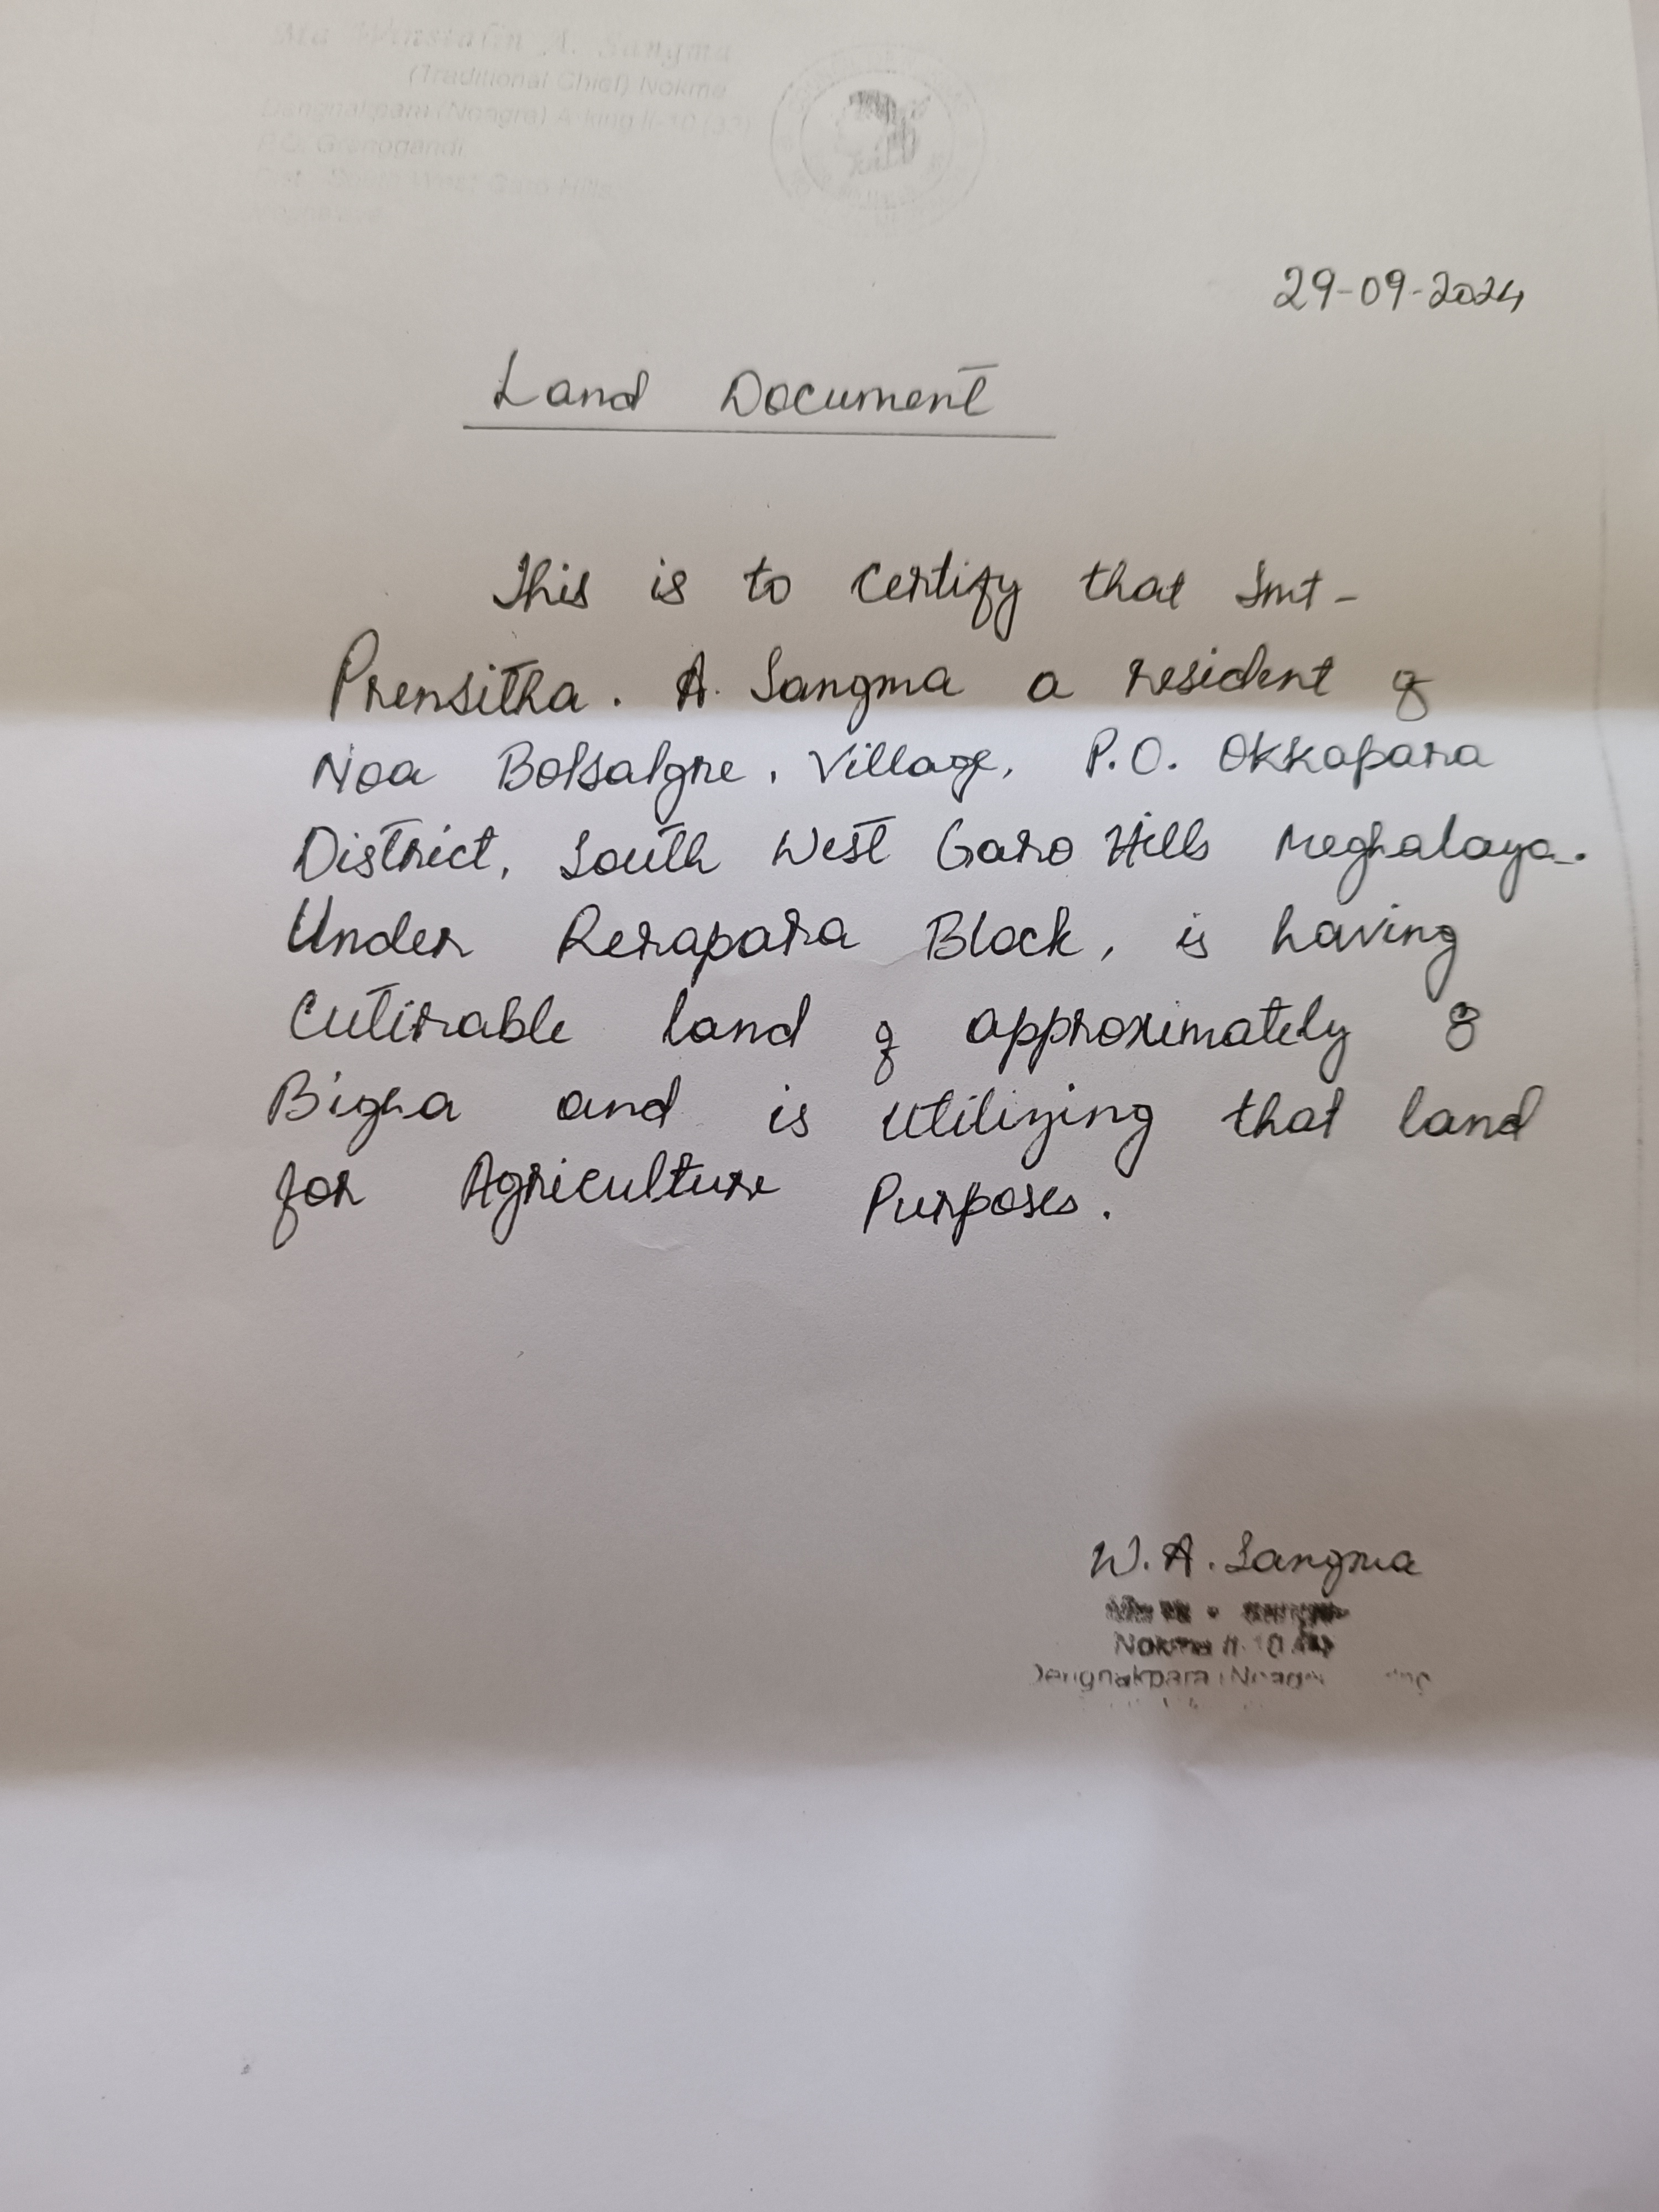 Winstalin A. Sangma
(Traditional Chief) Nokma
A-king II-10 (33)
P.O. Gronggandi
South West Garo Hills
29-09-2024
Land Document
This is to certify that Smt-
Prensitha. A. Sangma a resident of
Noa Bolsalgre. Village, P.O. Okkapara
District, South West Garo Hills Meghalaya.
Under Rerapara Block, is having
Cutirable land of approximately 8
Bigha and is utilizing that land
for Agriculture Purposes.
W. A. Sangma
Nokma II-10